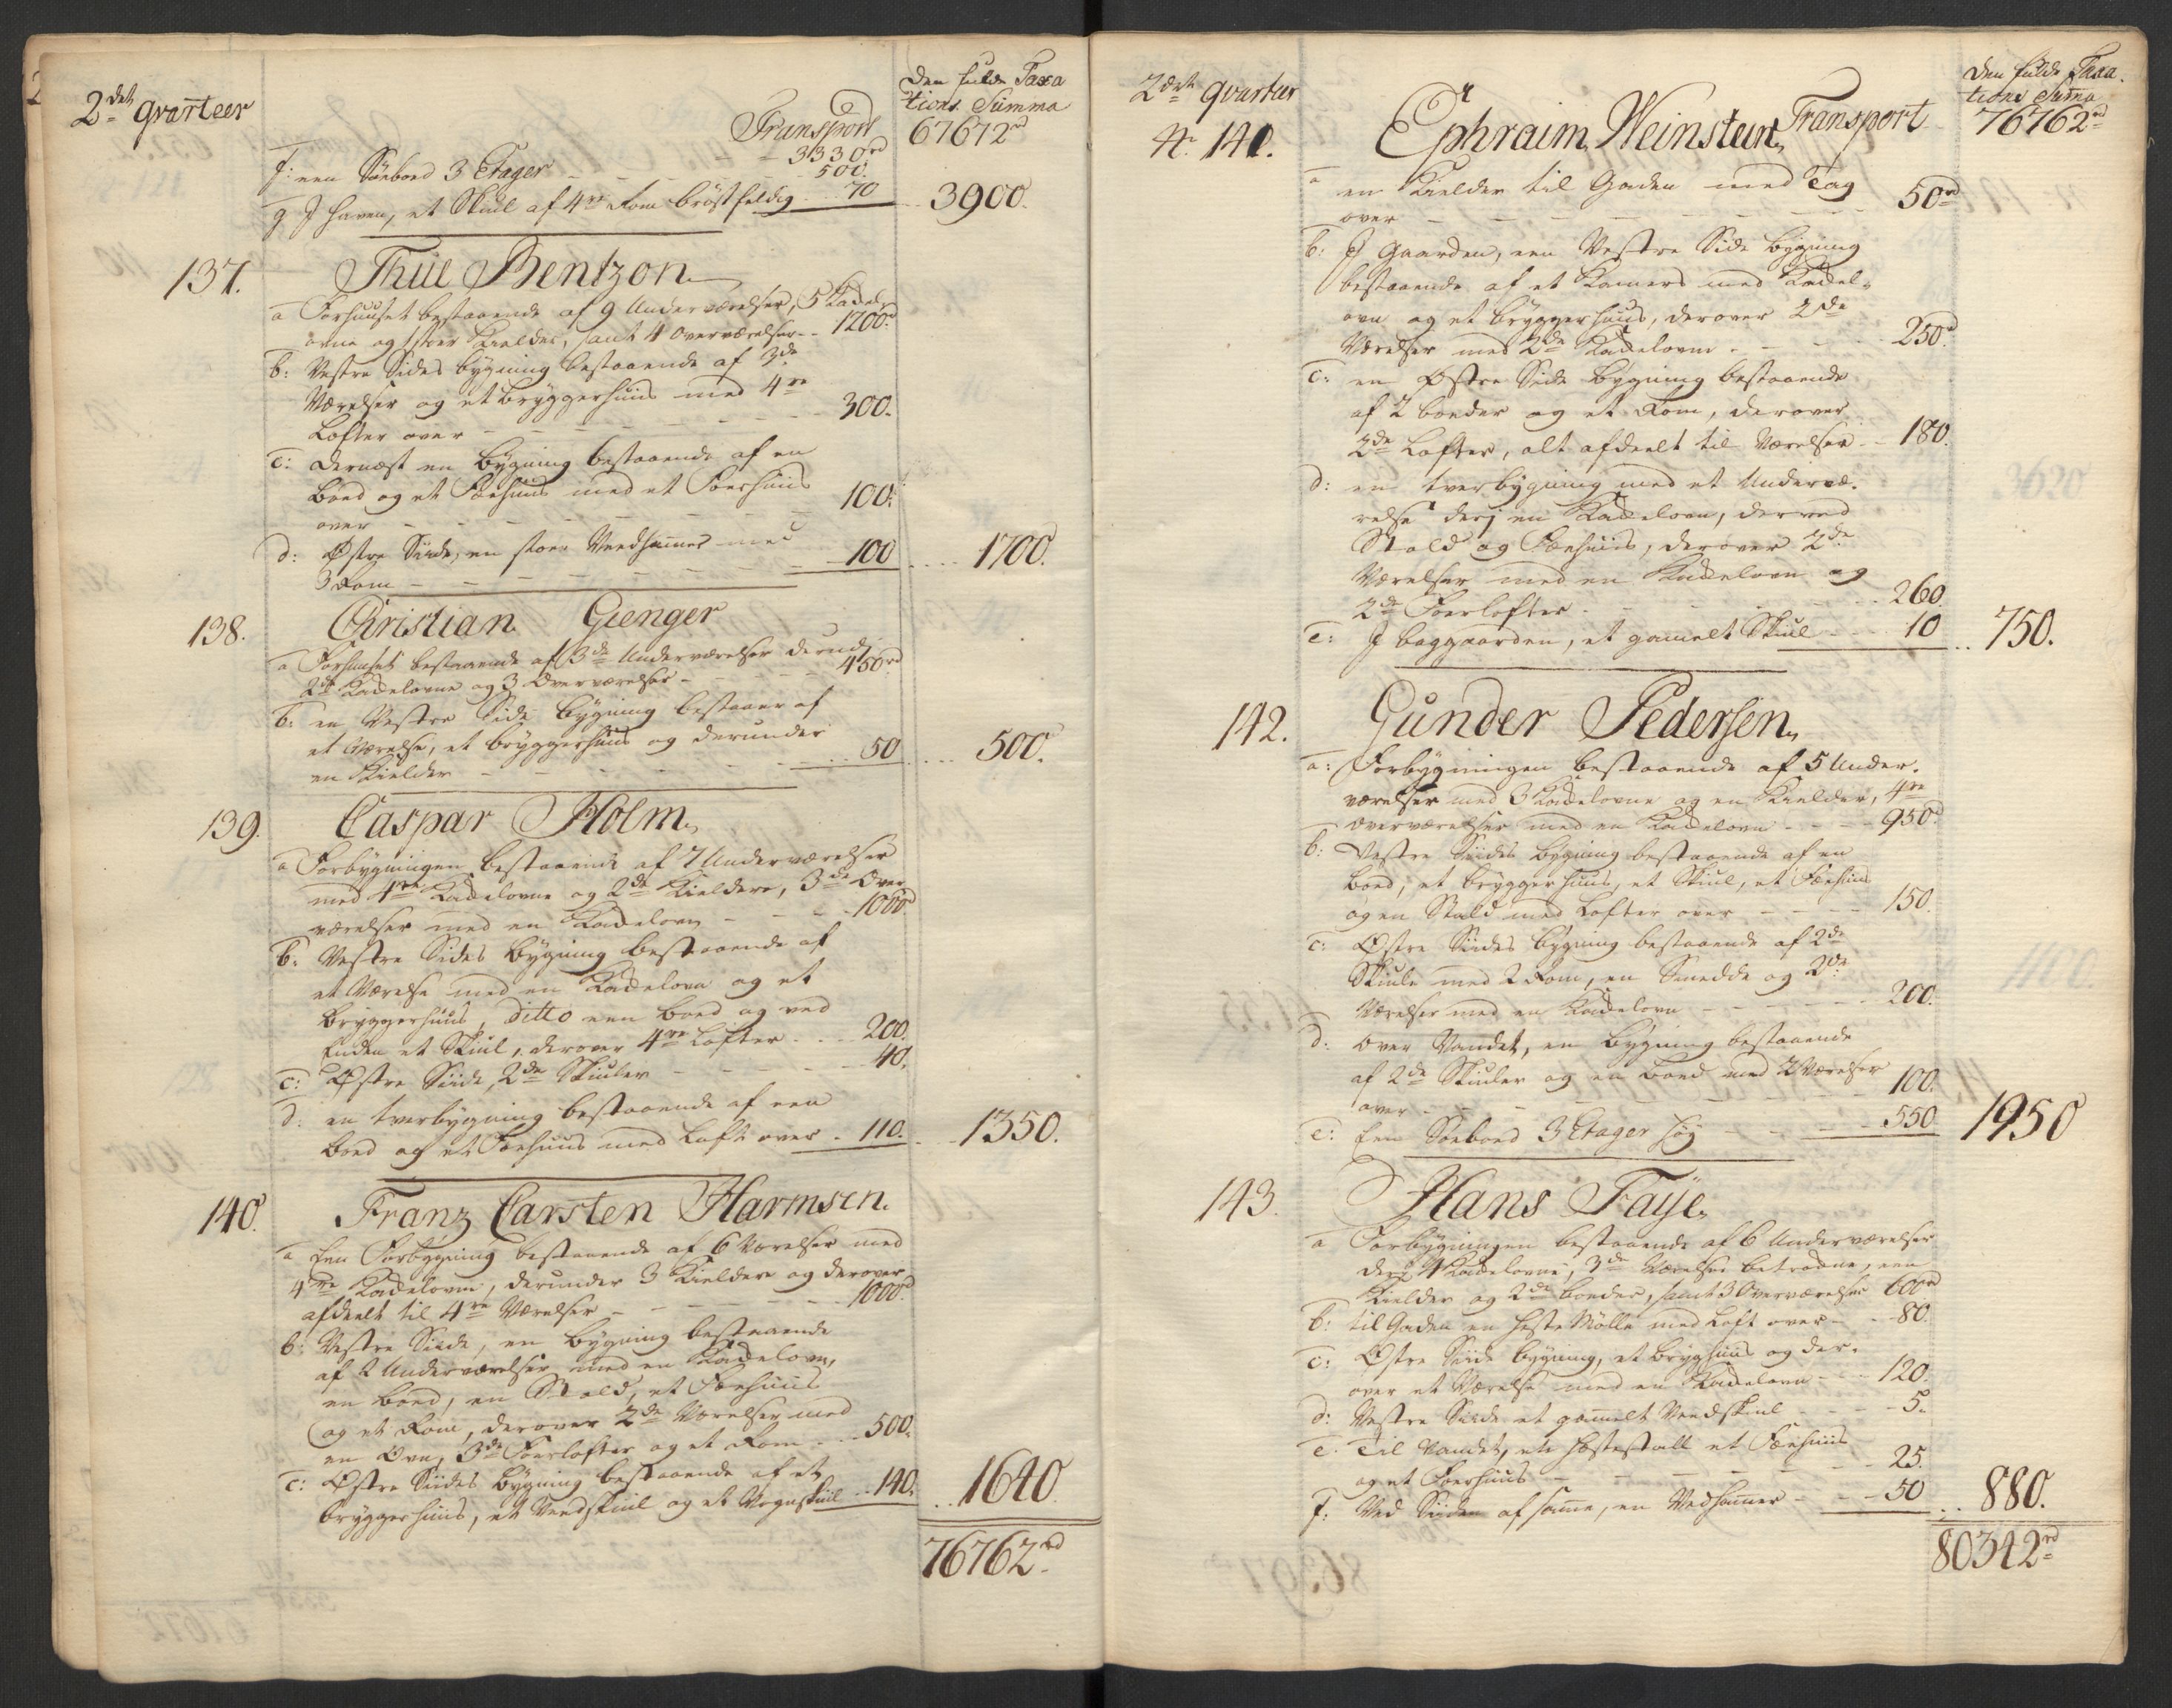 2det Qvarteer
Den fulde Taxa
tions Summa
Transport 67672rd
3330rd
f: een Söeboed 3 Etager 500.
g J Haven, et Skiul af 4re Rom bröstfeldig 70 3900.
137. Thue Bentzon
a Forhuuset bestaaende af 9 Underværelser, 5 Kackel-
ovne og stoer Kielder, samt 4 Overværelser 1200rd
b: Vestre Sides bÿgning bestaaende af 3de
Værelser og et brÿggerhuus med 4re
Lofter over 300.
c: dernæst en bÿgning bestaaende af en
boed og et Foehuus med et Foerhuus
over 100.
d: Østre Siide, en stoer Veedhammer med
3 Rom 100 1700.
138. Christian Gienger
a Forhuuset bestaaende af 3de Underværelser derudj
2de Kackelovne og 3 Overværelser 450rd
b: en Vestre Side bÿgning bestaaer af
et Værelse, et brÿggerhuus og derunder
en Kielder 50 500.
139. Caspar Holm
a Forbÿgningen bestaaende af 7 Underværelser
med 4re Kackelovne og 2de Kieldere, 3de Over
værelser med en Kackelovn 1000rd
b: Vestre Sides bÿgning bestaaende af
et Værelse med en Kackelovn og et
brÿggerhuus, ditto een boed og ved
Enden et Skiul, derover 4re Lofter 200.
c: Østre Siide, 2de Skiuler 40.
d: en tverbÿgning bestaaende af een
boed og et Foehuus med Loft over 110. 1350.
140. Franz Carsten Harmsen.
a Een Forbÿgning bestaaende af 6 Værelser med
4re Kackelovne, derunder 3 Kieldere og derover
afdeelt til 4re Værelser 1000rd
b: Vestre Siide, en bÿgning bestaaende
af 2 Underværelser med en Kackelovn,
en boed, en Stald, et Foehuus
og et Rom, derover 2de Værelser med
en Ovn, 3de Foerlofter og et Rom 500.
c: Østre Siides bÿgning bestaaende af et
brÿggerhuus, et Veedskiul og et Vognskiul 140. 1640.
76762rd
2det Qvarteer
Den fulde Taxa
tions Summa
№ 141. Ephraim Weinstein, Transport 76762rd
a en Kielder til Gaden med Tag
over 50rd
b: J Gaarden, een Vestre Side bÿgning
bestaaende af et Kamers med Kackel-
ovn og et brÿggerhuus, derover 2de
Værelser med 2de Kackelovne 250.
c: en Østre Side bÿgning bestaaende
af 2 boeder og et Rom, derover
2de Lofter, alt afdeelt til Værelser 180.
d: en tverbÿgning med et Undervæ-
relse derj en Kackelovn, derved
Stald og Foehuus, derover 2de
Værelser med en Kackelovn og
2de Foerlofter 260.
e: J baggaarden, et gamelt Skiul 10 750.
142. Gunder Pedersen
a: Forbÿgningen bestaaende af 5 Under-
værelser med 3 Kackelovne og en Kielder, 4re
Overværelser med en Kackelovn 950rd
b: Vestre Siides bÿgning bestaaende af en
boed, et brÿggerhuus, et Skiul, et Foehuus
og en Stald med Lofter over 150.
c: Østre Siides bÿgning bestaaende af 2de
Skiule med 2 Rom, en Smedde og 2de
Værelser med en Kackelovn 200.
d: over Vandet, en bÿgning bestaaende
af 2de Skiuler og en boed med 2 Værelser
over 100.
e: Een Söeboed 3 Etager høÿ 550 1950
143. Hans Faÿe
a Forbÿgningen bestaaende af 6 Underværelser
derj 4 Kackelovne, 3de Værelser betrokne, een
Kielder og 2de boeder, samt 3 Overværelser 600rd
b: til Gaden en Heste Mölle med Loft over 80.
c: Østre Siide bÿgning, et brÿghuus og der-
over et Værelse med en Kackelovn 120.
d: Vestre Siide et gamelt Veedskiul 5.
e. Til Vandet, en Hestestald et Foehuus
og et Foerhuus 25.
f: Ved Siiden af samme, en Vedhammer 50 880.
80342rd